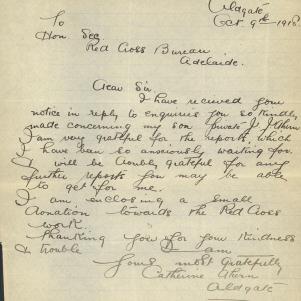 Aldgate
Oct 9th 1916
To
Hon Sec
Red Cross Bureau
Adelaide.
Dear Sir
I have received your
notice in reply to enquiries you so kindly
made concerning my son Private J J Ahern
I am very grateful for the reports which
I have been so anxiously waiting for.
I will be doubly grateful for any
further reports you may be able
to get for me.
I am enclosing a small
donation towards the Red Cross
work
Thanking you for your kindness
& trouble I am
Yours most gratefully
Catherine Ahern
Aldgate